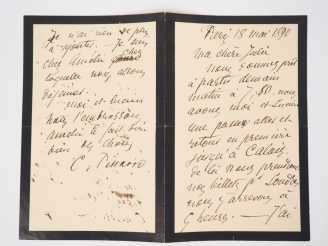 Paris 18 mai 1890
ma chère Julie
nous sommes prêt
à partir demain
matin à 7,50 nous
avons moi et Lucien
une passe aller et
retour en première
jusqu'à Calais,
de là nous prendrons
nos billets pr Londres
nous y arrivons à
5 heures. — J'ai
Je n'ai rien de plus
à ajouter. — Je suis
chez Amélie
laquelle nous allons
déjeuner.
moi et Lucien
nous t'embrassons
Amélie te fait dire
bien des choses
C. Pissarro